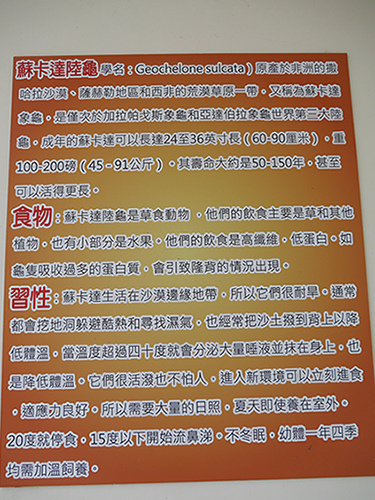 蘇卡達陸龜學名：Geochelone sulcata）原產於非洲的撒
哈拉沙漠、薩赫勒地區和西非的荒漠草原一帶，又稱為蘇卡達
象龜，是僅次於加拉帕戈斯象龜和亞達伯拉象龜世界第三大陸
龜，成年的蘇卡達可以長達24至36英寸長（60-90厘米），重
100-200磅（45-91公斤）。其壽命大約是50-150年，甚至
可以活得更長。
食物：蘇卡達陸龜是草食動物，他們的飲食主要是草和其他
植物，也有小部分是水果。他們的飲食是高纖維，低蛋白，如
龜隻吸收過多的蛋白質，會引致隆背的情況出現。
習性：蘇卡達生活在沙漠邊緣地帶，所以它們很耐旱，通常
都會挖地洞躲避酷熱和尋找濕氣，也經常把沙土撥到背上以降
低體溫，當溫度超過四十度就會分泌大量唾液並抹在身上，也
是降低體溫。它們很活潑也不怕人，進入新環境可以立刻進食
，適應力良好，所以需要大量的日照，夏天即使養在室外。
20度就停食，15度以下開始流鼻涕。不冬眠，幼體一年四季
均需加溫飼養。